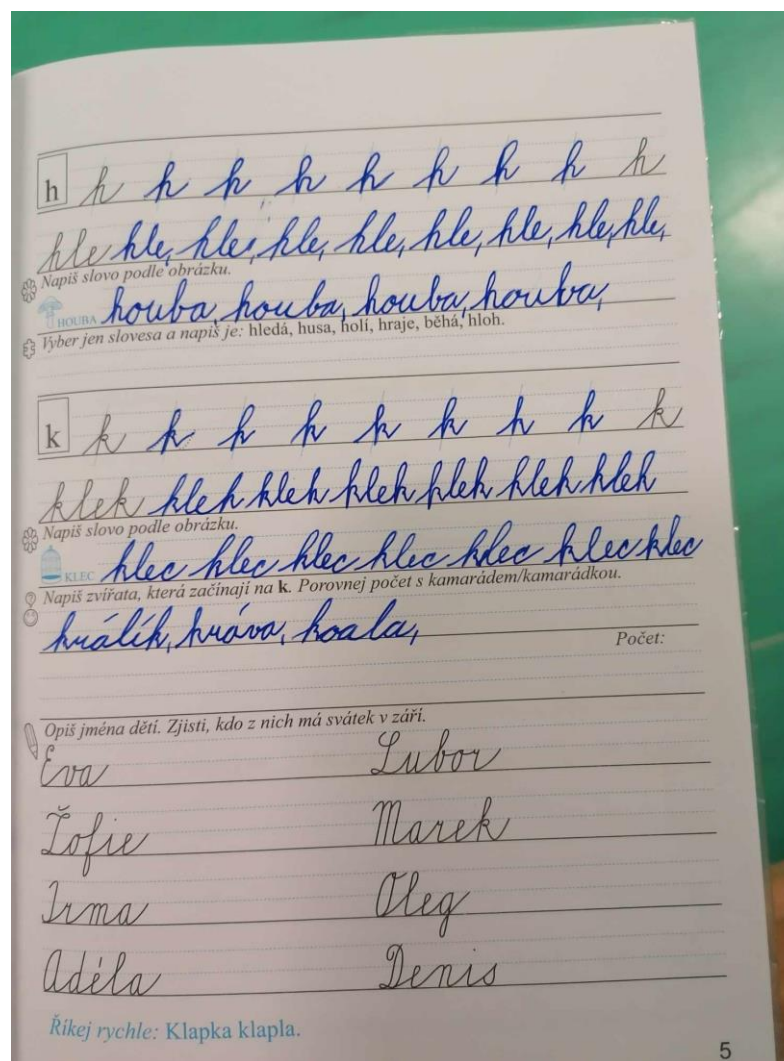 h h h h h h h h h h
hle hle, hle, hle, hle, hle, hle, hle, hle,
Napiš slovo podle obrázku.
HOUBA houba, houba, houba, houba,
Vyber jen slovesa a napiš je: hledá, husa, holí, hraje, běhá, hloh.
k k k k k k k k k k
klek klek klek klek klek klek klek
Napiš slovo podle obrázku.
KLEC klec klec klec klec klec klec klec
Napiš zvířata, která začínají na k. Porovnej počet s kamarádem/kamarádkou.
králík, kráva, koala,
Počet:
Opiš jména dětí. Zjisti, kdo z nich má svátek v září.
Eva Lubor
Žofie Marek
Irma Oleg
Adéla Denis
Říkej rychle: Klapka klapla.
5